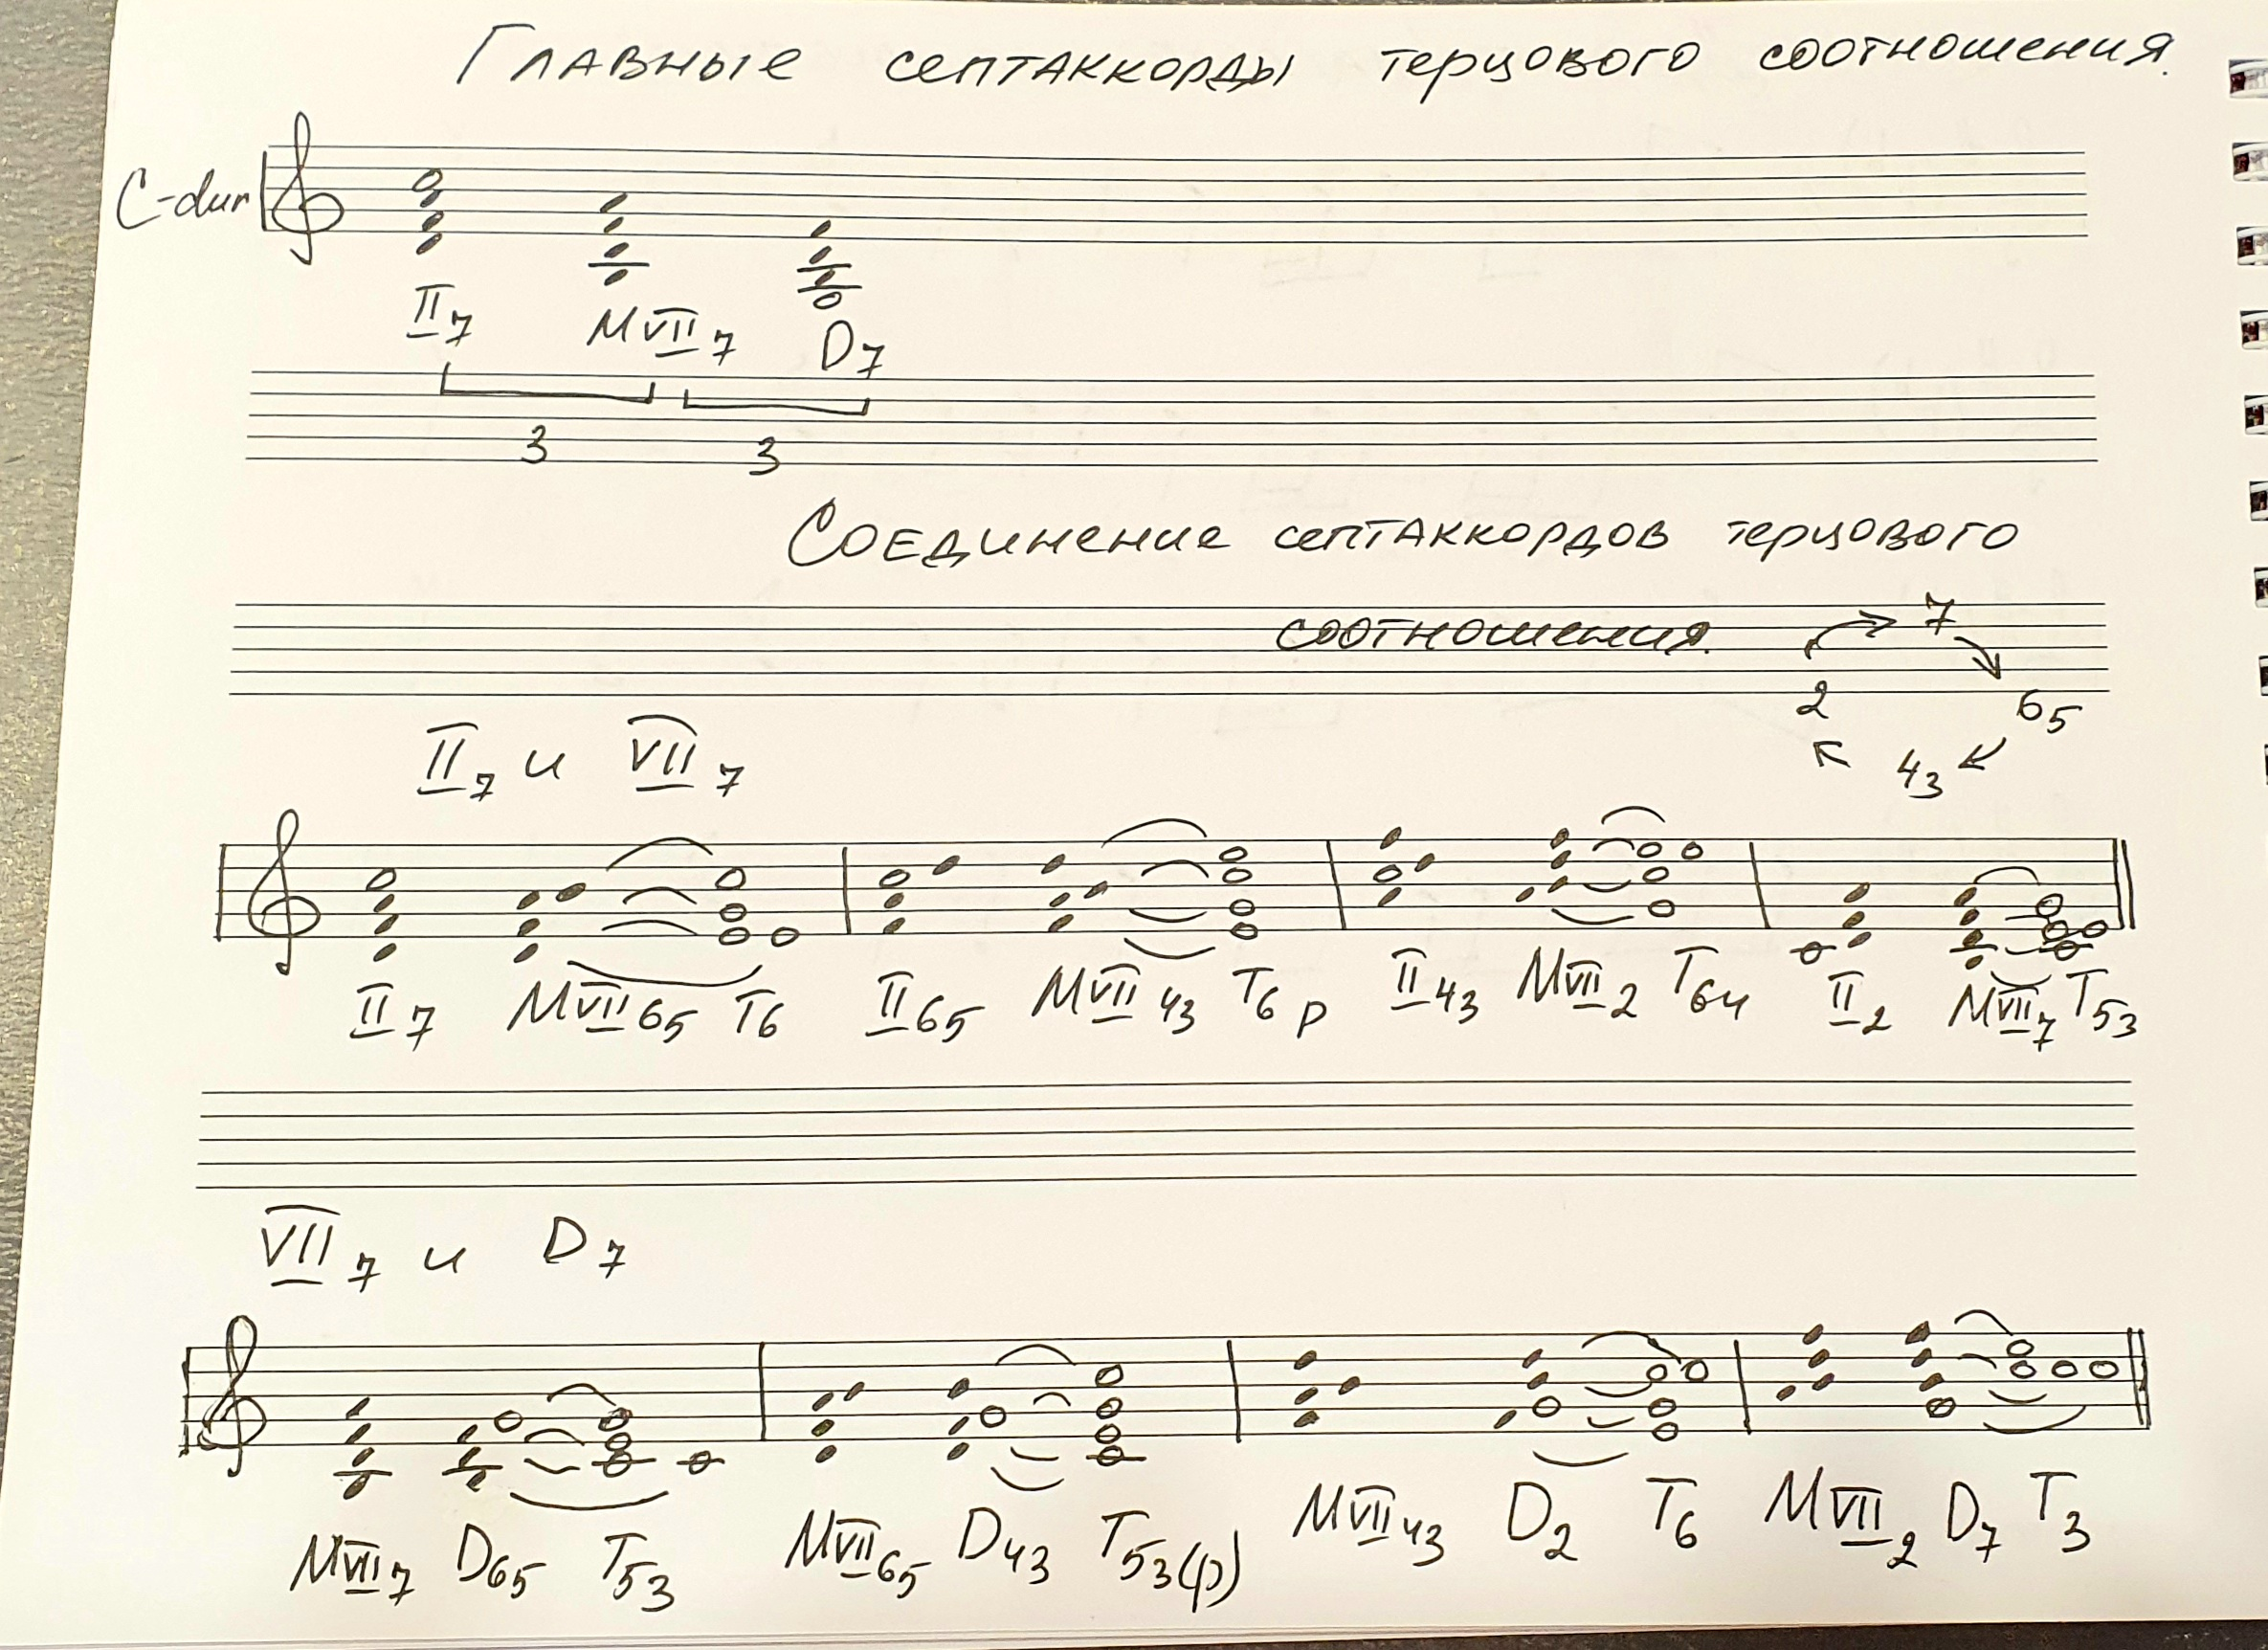 Главные септаккорды терцового соотношения.
C-dur
II7 MVII7 D7
3 3
Соединение септаккордов терцового
соотношения.
7
2 65
43
II7 и VII7
II7 MVII65 T6 II65 MVII43 T6 р II43 MVII2 T64 II2 MVII7 T53
VII7 и D7
MVII7 D65 T53 MVII65 D43 T53(р) MVII43 D2 T6 MVII2 D7 T3